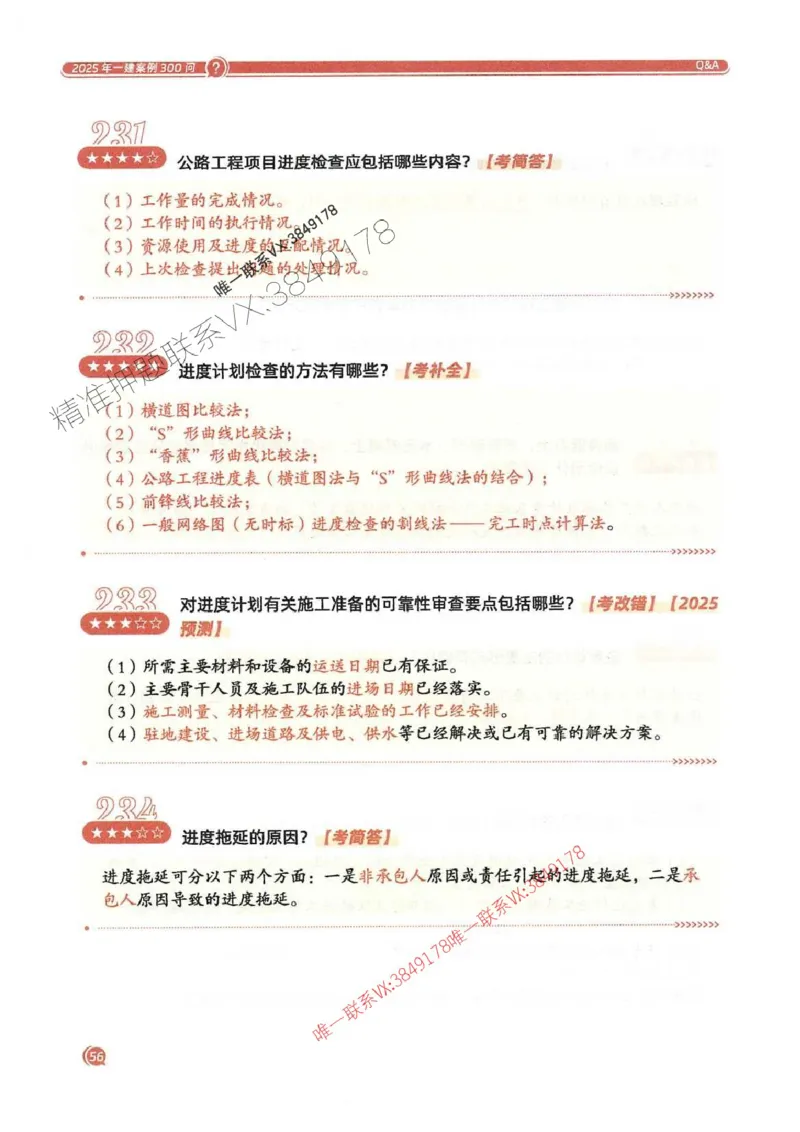 2025年一建案例300问 ?
Q&A
231
★★★★☆ 公路工程项目进度检查应包括哪些内容？【考简答】
（1）工作量的完成情况。
（2）工作时间的执行情况。
（3）资源使用及进度的匹配情况。
（4）上次检查提出问题的处理情况。
唯一联系VX:3849178
精准押题联系VX:3849178
232
进度计划检查的方法有哪些？【考补全】
（1）横道图比较法；
（2）“S”形曲线比较法；
（3）“香蕉”形曲线比较法；
（4）公路工程进度表（横道图法与“S”形曲线法的结合）；
（5）前锋线比较法；
（6）一般网络图（无时标）进度检查的割线法——完工时点计算法。
233
★★★☆☆ 对进度计划有关施工准备的可靠性审查要点包括哪些？【考改错】【2025
预测】
（1）所需主要材料和设备的运送日期已有保证。
（2）主要骨干人员及施工队伍的进场日期已经落实。
（3）施工测量、材料检查及标准试验的工作已经安排。
（4）驻地建设、进场道路及供电、供水等已经解决或已有可靠的解决方案。
234
★★★☆☆ 进度拖延的原因？【考简答】
进度拖延可分以下两个方面：一是非承包人原因或责任引起的进度拖延，二是承
包人原因导致的进度拖延。
唯一联系VX:3849178唯一联系VX:3849178
56